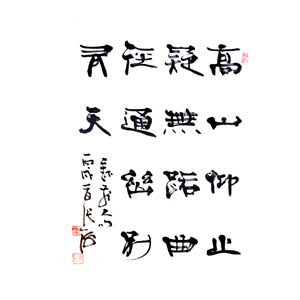 高山仰止
疑無路曲
径通幽别
有天